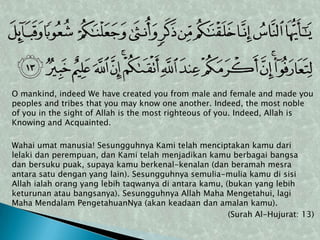 يَـٰٓأَيُّهَا ٱلنَّاسُ إِنَّا خَلَقْنَـٰكُم مِّن ذَكَرٍ وَأُنثَىٰ وَجَعَلْنَـٰكُمْ شُعُوبًا وَقَبَآئِلَ
لِتَعَارَفُوٓا۟ ۚ إِنَّ أَكْرَمَكُمْ عِندَ ٱللَّهِ أَتْقَىٰكُمْ ۚ إِنَّ ٱللَّهَ عَلِيمٌ خَبِيرٌ ١٣
O mankind, indeed We have created you from male and female and made you
peoples and tribes that you may know one another. Indeed, the most noble
of you in the sight of Allah is the most righteous of you. Indeed, Allah is
Knowing and Acquainted.
Wahai umat manusia! Sesungguhnya Kami telah menciptakan kamu dari
lelaki dan perempuan, dan Kami telah menjadikan kamu berbagai bangsa
dan bersuku puak, supaya kamu berkenal-kenalan (dan beramah mesra
antara satu dengan yang lain). Sesungguhnya semulia-mulia kamu di sisi
Allah ialah orang yang lebih taqwanya di antara kamu, (bukan yang lebih
keturunan atau bangsanya). Sesungguhnya Allah Maha Mengetahui, lagi
Maha Mendalam PengetahuanNya (akan keadaan dan amalan kamu).
(Surah Al-Hujurat: 13)